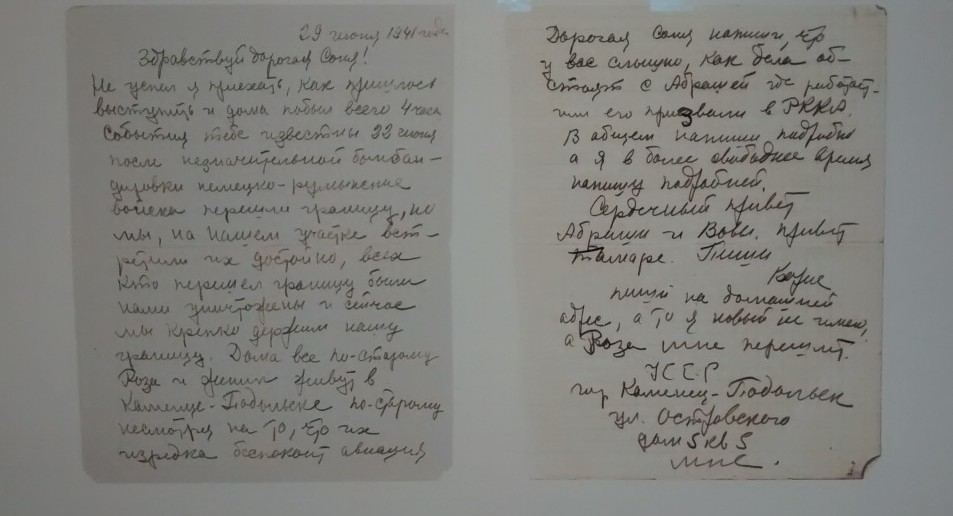 29 июня 1941 года
Здравствуй дорогая Соня!
Не успел я приехать, как пришлось
выступить и дома побыл всего 4 часа
События тебе известны 22 июня
после незначительной бомбан-
дировки немецко-румынские
войска перешли границу, но
мы, на нашем участке вст-
ретили их достойно, всех
кто перешел границу были
нами уничтожены и сейчас
мы крепко держим нашу
границу. Дома все по-старому
Роза и живут в
Каменце-Подольске по-старому
несмотря на то, что их
изредка беспокоит авиация
Дорогая Соня напиши, что
у вас слышно, как дела об-
стоят с Абрашей где работает
или его призвали в РККА.
В общем напиши подробно
а я в более свободнее время
напишу подробней.
Сердечный привет
Абраши и Вове. привет
Тамаре. Пиши
пиши на домашний
адрес, а то я новый не имею,
а Роза мне перешлет.
УССР
гор Каменец-Подольск
ул. Островского
дом 5 кв 5
мне.